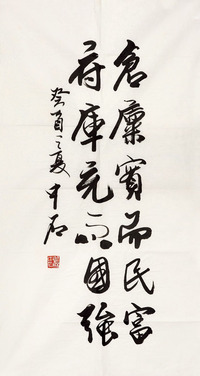 倉廪實而民富
府庫充而國強
癸酉之夏中石